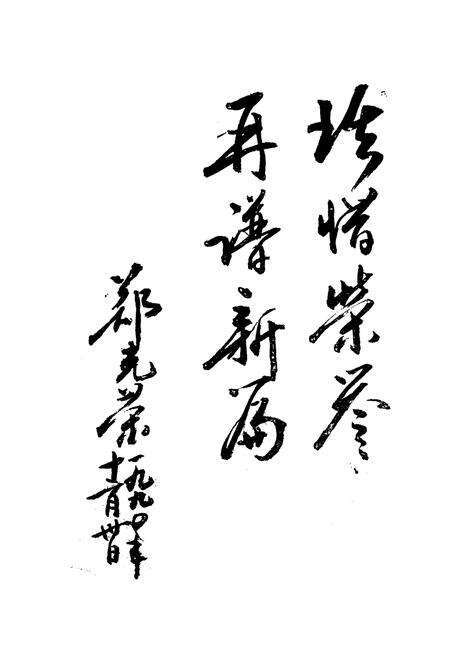 珍惜荣誉
再谱新篇
郑光
一九九〇年
十一月卅日